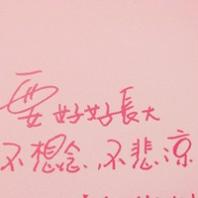 要好好長大
不想念、不悲涼